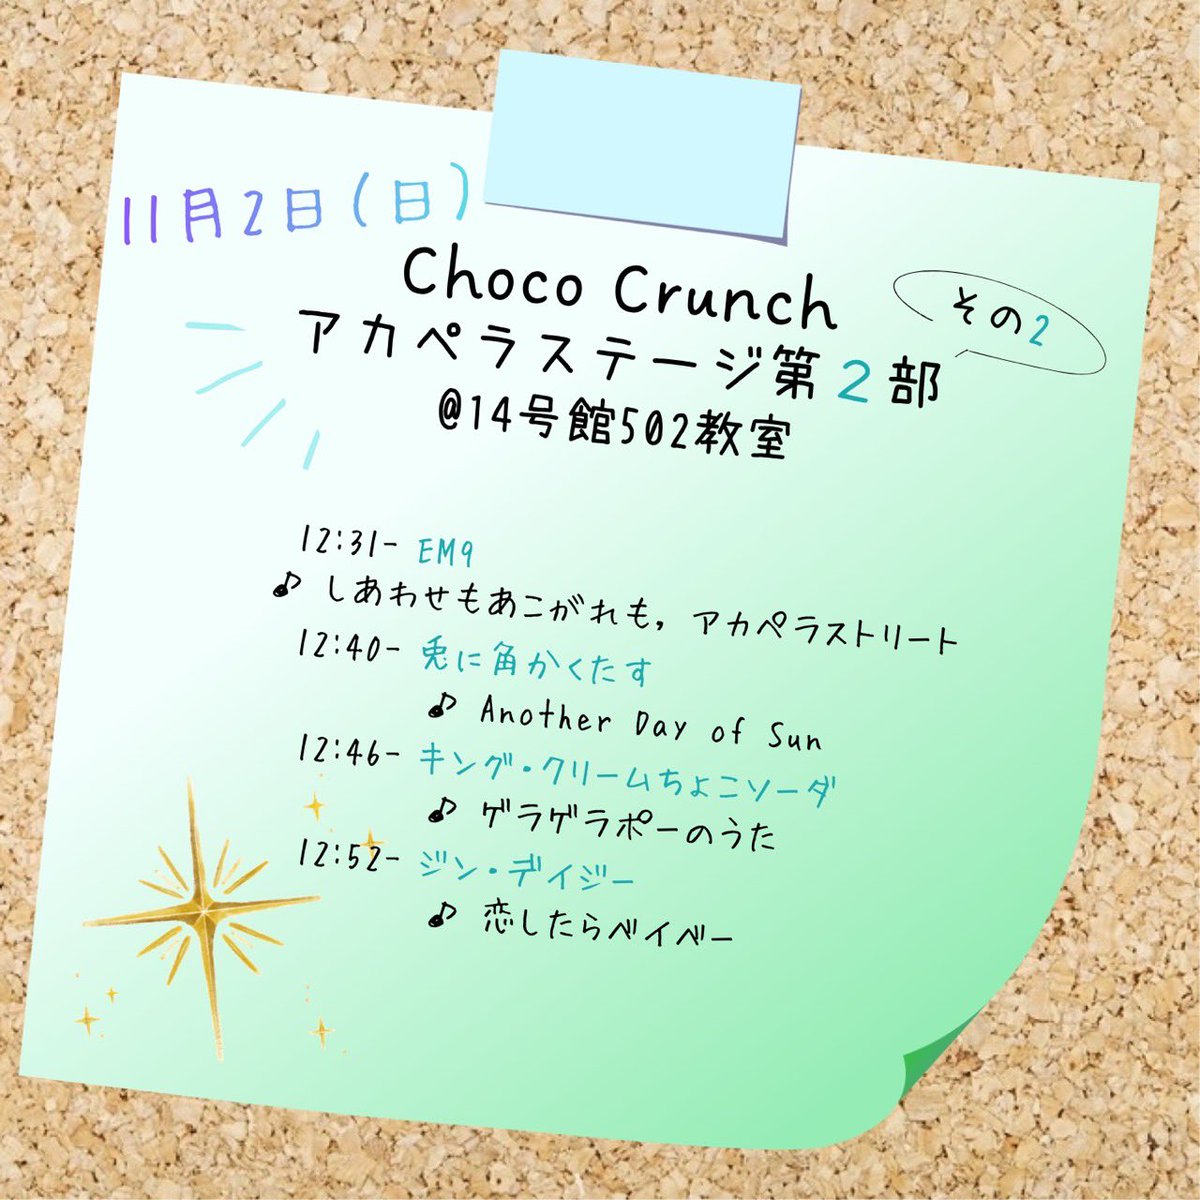 11月2日(日)
Choco Crunch
その2
アカペラステージ第2部
@14号館502教室
12:31- EM9
♪ しあわせもあこがれも, アカペラストリート
12:40- 兎に角かくたす
♪ Another Day of Sun
12:46- キング・クリームちょこソーダ
♪ ゲラゲラポーのうた
12:52- ジン・デイジー
♪ 恋したらベイベー